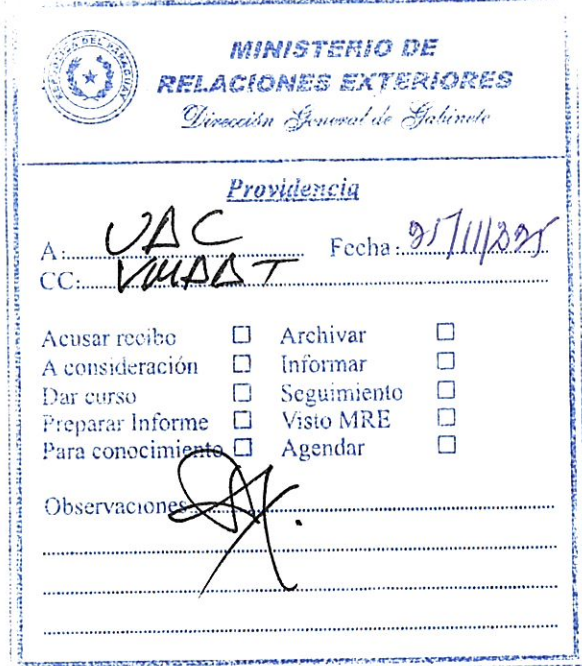 REPUBLICA DEL PARAGUAY
MINISTERIO DE
RELACIONES EXTERIORES
Dirección General de Gabinete
Providencia
A: UAC Fecha:
CC: VMAAT
Acusar recibo ☐ Archivar ☐
A consideración ☐ Informar ☐
Dar curso ☐ Seguimiento ☐
Preparar Informe ☐ Visto MRE ☐
Para conocimiento ☐ Agendar ☐
Observaciones